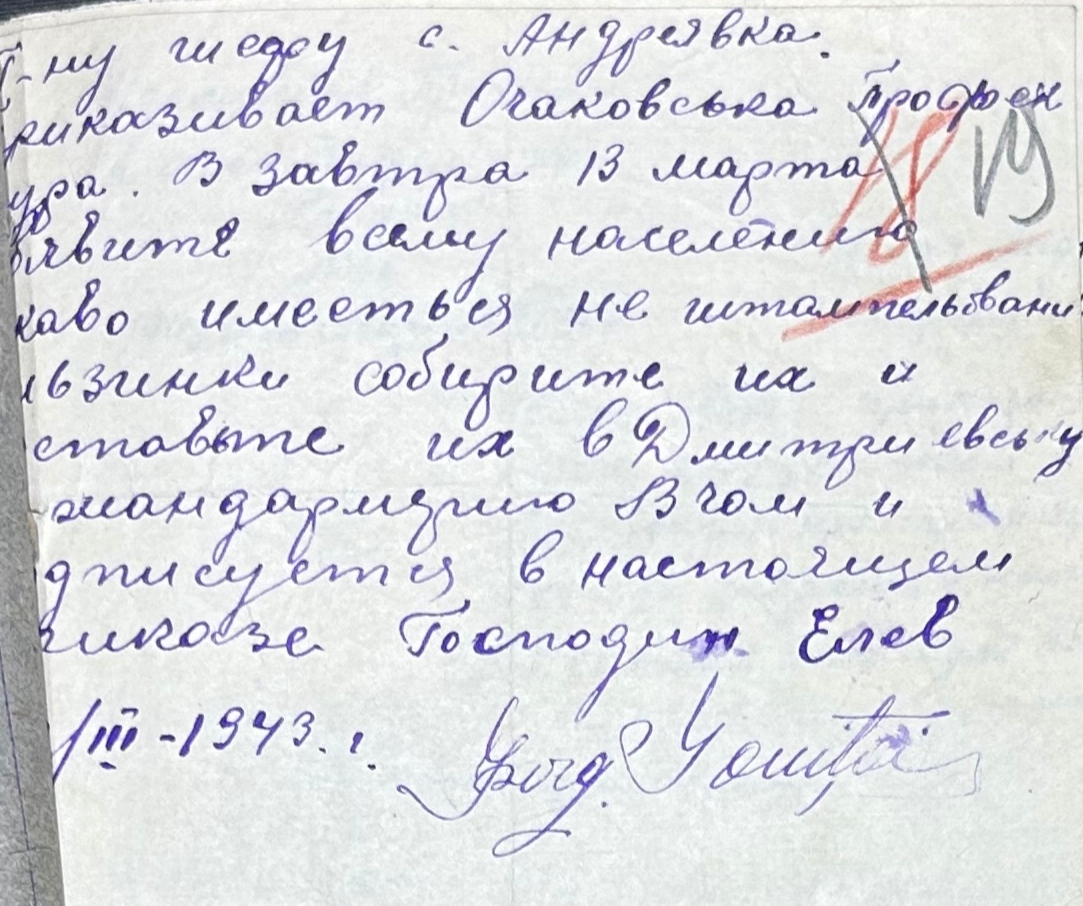 Г-ну шефу с. Андреявка.
риказивает Очаковська Профек
ура. В завтра 13 марта
вявите всему населению
каво имееться не штампельовани
ьзинки собирите их и
ставьте их в Дмитриевську
жандармерию В чом и
дписуется в настоящем
риказе Господин Елев
/III-1943.г.
18
19